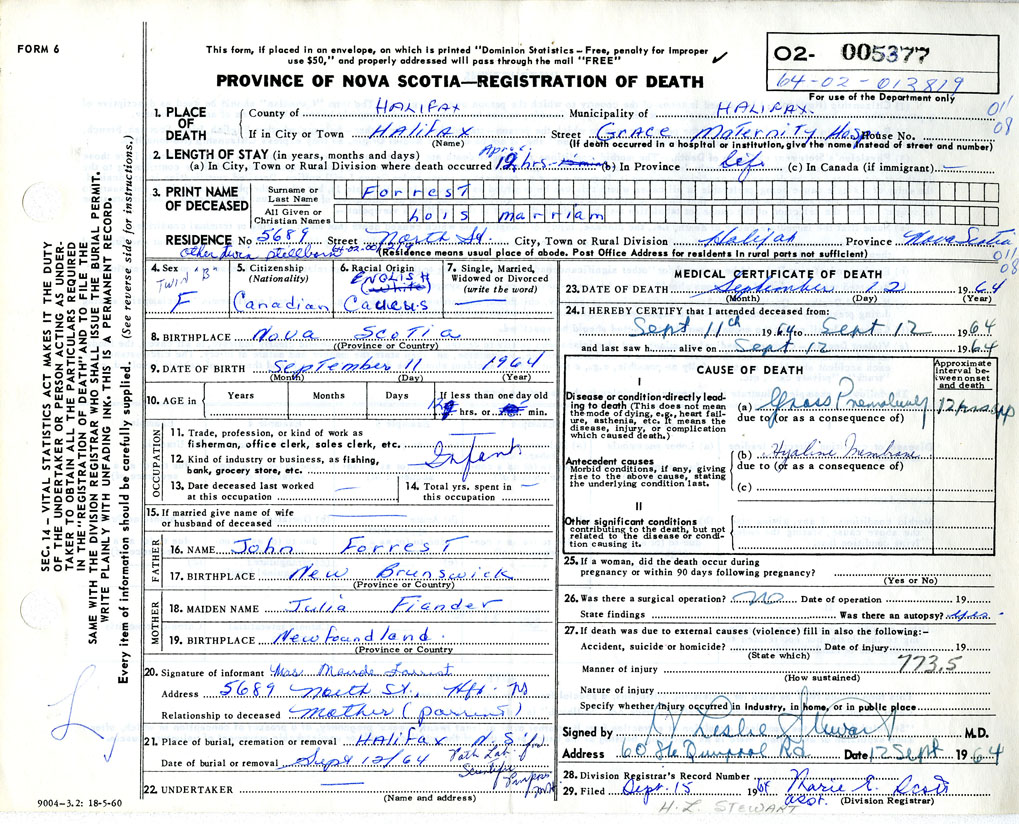 FORM 6
This form, if placed in an envelope, on which is printed "Dominion Statistics – Free, penalty for improper
use $50," and properly addressed will pass through the mail "FREE"
✓
PROVINCE OF NOVA SCOTIA—REGISTRATION OF DEATH
02- 005377
64-02-013819
For use of the Department only
011
08
1. PLACE OF DEATH
County of HALIFAX Municipality of HALIFAX
If in City or Town HALIFAX Street GRACE MATERNITY Hosp House No.
(Name) (If death occurred in a hospital or institution, give the name instead of street and number)
2. LENGTH OF STAY (in years, months and days)
(a) In City, Town or Rural Division where death occurred 12 hrs (b) In Province life (c) In Canada (if immigrant) —
3. PRINT NAME OF DECEASED
Surname or Last Name Forrest
All Given or Christian Names Lois marriam
RESIDENCE No 5689 Street North St City, Town or Rural Division Halifax Province Nova Scotia
other twin stillborn
(Residence means usual place of abode. Post Office Address for residents in rural parts not sufficient)
011
08
4. Sex
TWIN "B"
F
5. Citizenship
(Nationality)
Canadian
6. Racial Origin
ENGLISH
(white)
Caucus
7. Single, Married, Widowed or Divorced
(write the word)
—
8. BIRTHPLACE Nova Scotia
(Province or Country)
9. DATE OF BIRTH September 11 1964
(Month) (Day) (Year)
10. AGE in
Years
Months
Days
If less than one day old
12 hrs. or min.
OCCUPATION
11. Trade, profession, or kind of work as
fisherman, office clerk, sales clerk, etc.
12. Kind of industry or business, as fishing,
bank, grocery store, etc.
Infant
13. Date deceased last worked
at this occupation —
14. Total yrs. spent in
this occupation —
15. If married give name of wife
or husband of deceased —
FATHER
16. NAME John Forrest
17. BIRTHPLACE New Brunswick
(Province or Country)
MOTHER
18. MAIDEN NAME Julia Fiander
19. BIRTHPLACE Newfoundland
(Province or Country
20. Signature of informant Mrs. Maude
Address 5689 North St., Hfx. NS
Relationship to deceased Mother (parent)
21. Place of burial, cremation or removal HALIFAX N.S.
Date of burial or removal Sept 12/64
Path Lab.
Scientific
Purposes
22. UNDERTAKER
(Name and address)
9004-3.2: 18-5-60
MEDICAL CERTIFICATE OF DEATH
23. DATE OF DEATH September 12 1964
(Month) (Day) (Year)
24. I HEREBY CERTIFY that I attended deceased from:
Sept 11th 1964 to Sept 12 1964
and last saw h alive on Sept 12 1964
CAUSE OF DEATH
Approximate interval between onset and death
I
Disease or condition directly leading to death (This does not mean the mode of dying, e.g., heart failure, asthenia, etc. It means the disease, injury, or complication which caused death.)
(a) Gross Prematurity 12 hours
due to (or as a consequence of)
Antecedent causes
Morbid conditions, if any, giving rise to the above cause, stating the underlying condition last.
(b) Hyaline Membrane
due to (or as a consequence of)
(c)
II
Other significant conditions
contributing to the death, but not related to the disease or condition causing it.
25. If a woman, did the death occur during
pregnancy or within 90 days following pregnancy?
(Yes or No)
26. Was there a surgical operation? no Date of operation 19
State findings Was there an autopsy? yes
27. If death was due to external causes (violence) fill in also the following:–
Accident, suicide or homicide? Date of injury 19
(State which)
773.5
Manner of injury
(How sustained)
Nature of injury
Specify whether injury occurred in industry, in home, or in public place
Signed by H Leslie Stewart M.D.
Address Rd Date 12 Sept 1964
28. Division Registrar's Record Number
29. Filed Sept. 15 1964 Marie E. Scott
asst. (Division Registrar)
H. L. STEWART
SEC. 14 – VITAL STATISTICS ACT MAKES IT THE DUTY
OF THE UNDERTAKER OR PERSON ACTING AS UNDER-
TAKER TO OBTAIN ALL THE PARTICULARS REQUIRED
IN THE "REGISTRATION OF DEATH" AND TO FILE THE
SAME WITH THE DIVISION REGISTRAR WHO SHALL ISSUE THE BURIAL PERMIT.
WRITE PLAINLY WITH UNFADING INK. THIS IS A PERMANENT RECORD.
Every item of information should be carefully supplied. (See reverse side for instructions.)